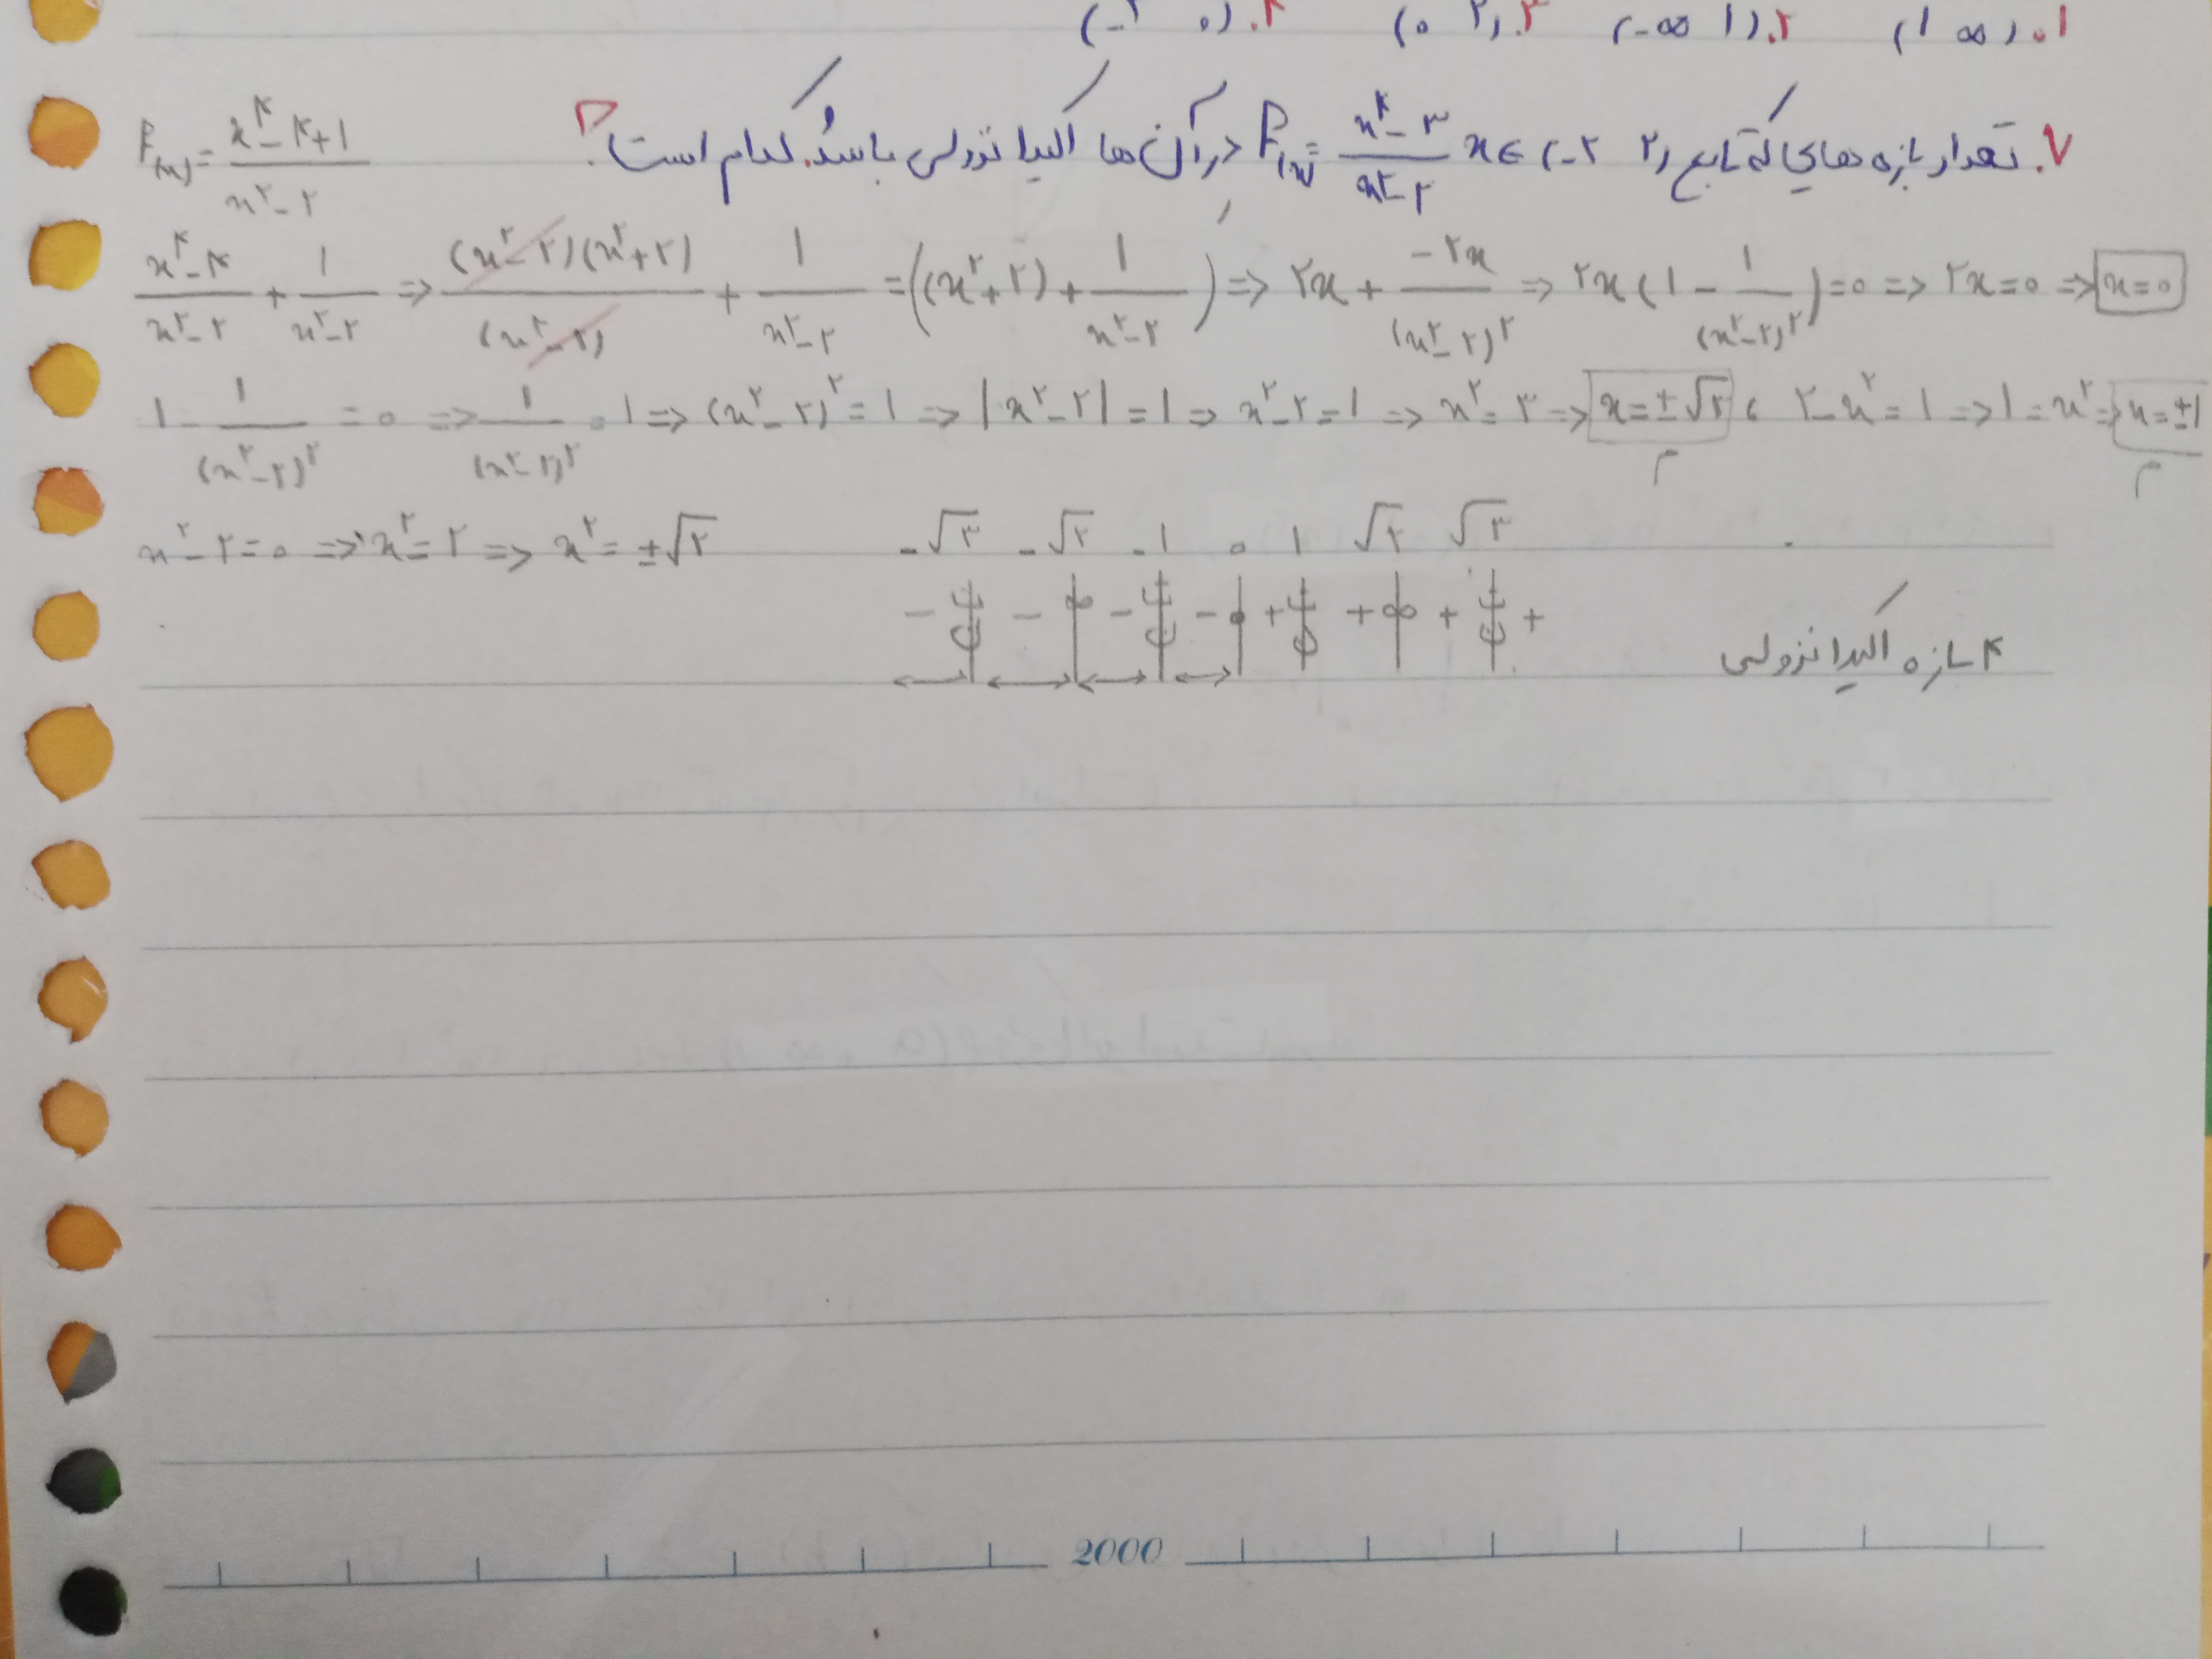 ۱. (۱ ∞) ۲. (-∞ ۱) ۳. (۰ ۲) ۴. (-۲ ۰)
۷. تعداد بازه هایی که تابع F(x) = (x^۴ - ۳)/(x^۲ - ۲) x ∈ (-۲ ۲) در آن ها اکیدا نزولی باشد. کدام است؟
F(x) = (x^۴ - ۴ + ۱)/(x^۲ - ۲)
(x^۴ - ۴)/(x^۲ - ۲) + ۱/(x^۲ - ۲) => (x^۲ - ۲)(x^۲ + ۲)/(x^۲ - ۲) + ۱/(x^۲ - ۲) = ((x^۲ + ۲) + ۱/(x^۲ - ۲))' => ۲x + (-۲x)/(x^۲ - ۲)^۲ => ۲x(۱ - ۱/(x^۲ - ۲)^۲) = ۰ => ۲x = ۰ => x = ۰
۱ - ۱/(x^۲ - ۲)^۲ = ۰ => ۱/(x^۲ - ۲)^۲ = ۱ => (x^۲ - ۲)^۲ = ۱ => |x^۲ - ۲| = ۱ => x^۲ - ۲ = ۱ => x^۲ = ۳ => x = ±√۳ ، ۲ - x^۲ = ۱ => ۱ = x^۲ => x = ±۱
م م
x^۲ - ۲ = ۰ => x^۲ = ۲ => x^۲ = ±√۲
-√۳ -√۲ -۱ ۰ ۱ √۲ √۳
- - - - + + + +
۴ بازه اکیدا نزولی
2000